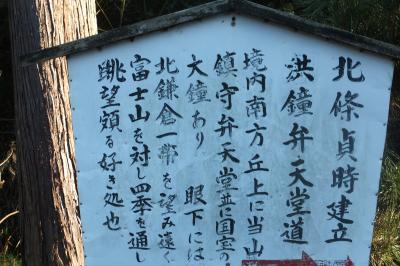 北條貞時建立
洪鐘弁天堂道
境内南方丘上に当山
鎮守弁天堂並に国宝の
大鐘あり　眼下には
北鎌倉一帯を望み遠く
富士山を対し四季を通し
眺望頗る好き処也